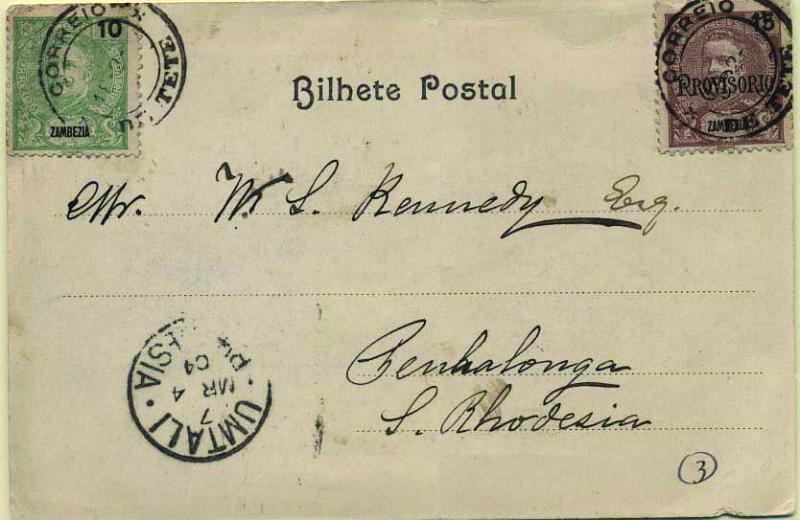 10
CORREIO
TETE
ZAMBEZIA
CORREIO
TETE
PROVISORIO
ZAMBEZIA
Bilhete Postal
Mr. W. S. Kennedy Esq.
Penhalonga
S. Rhodesia
UMTALI
MR 4
04
7
3